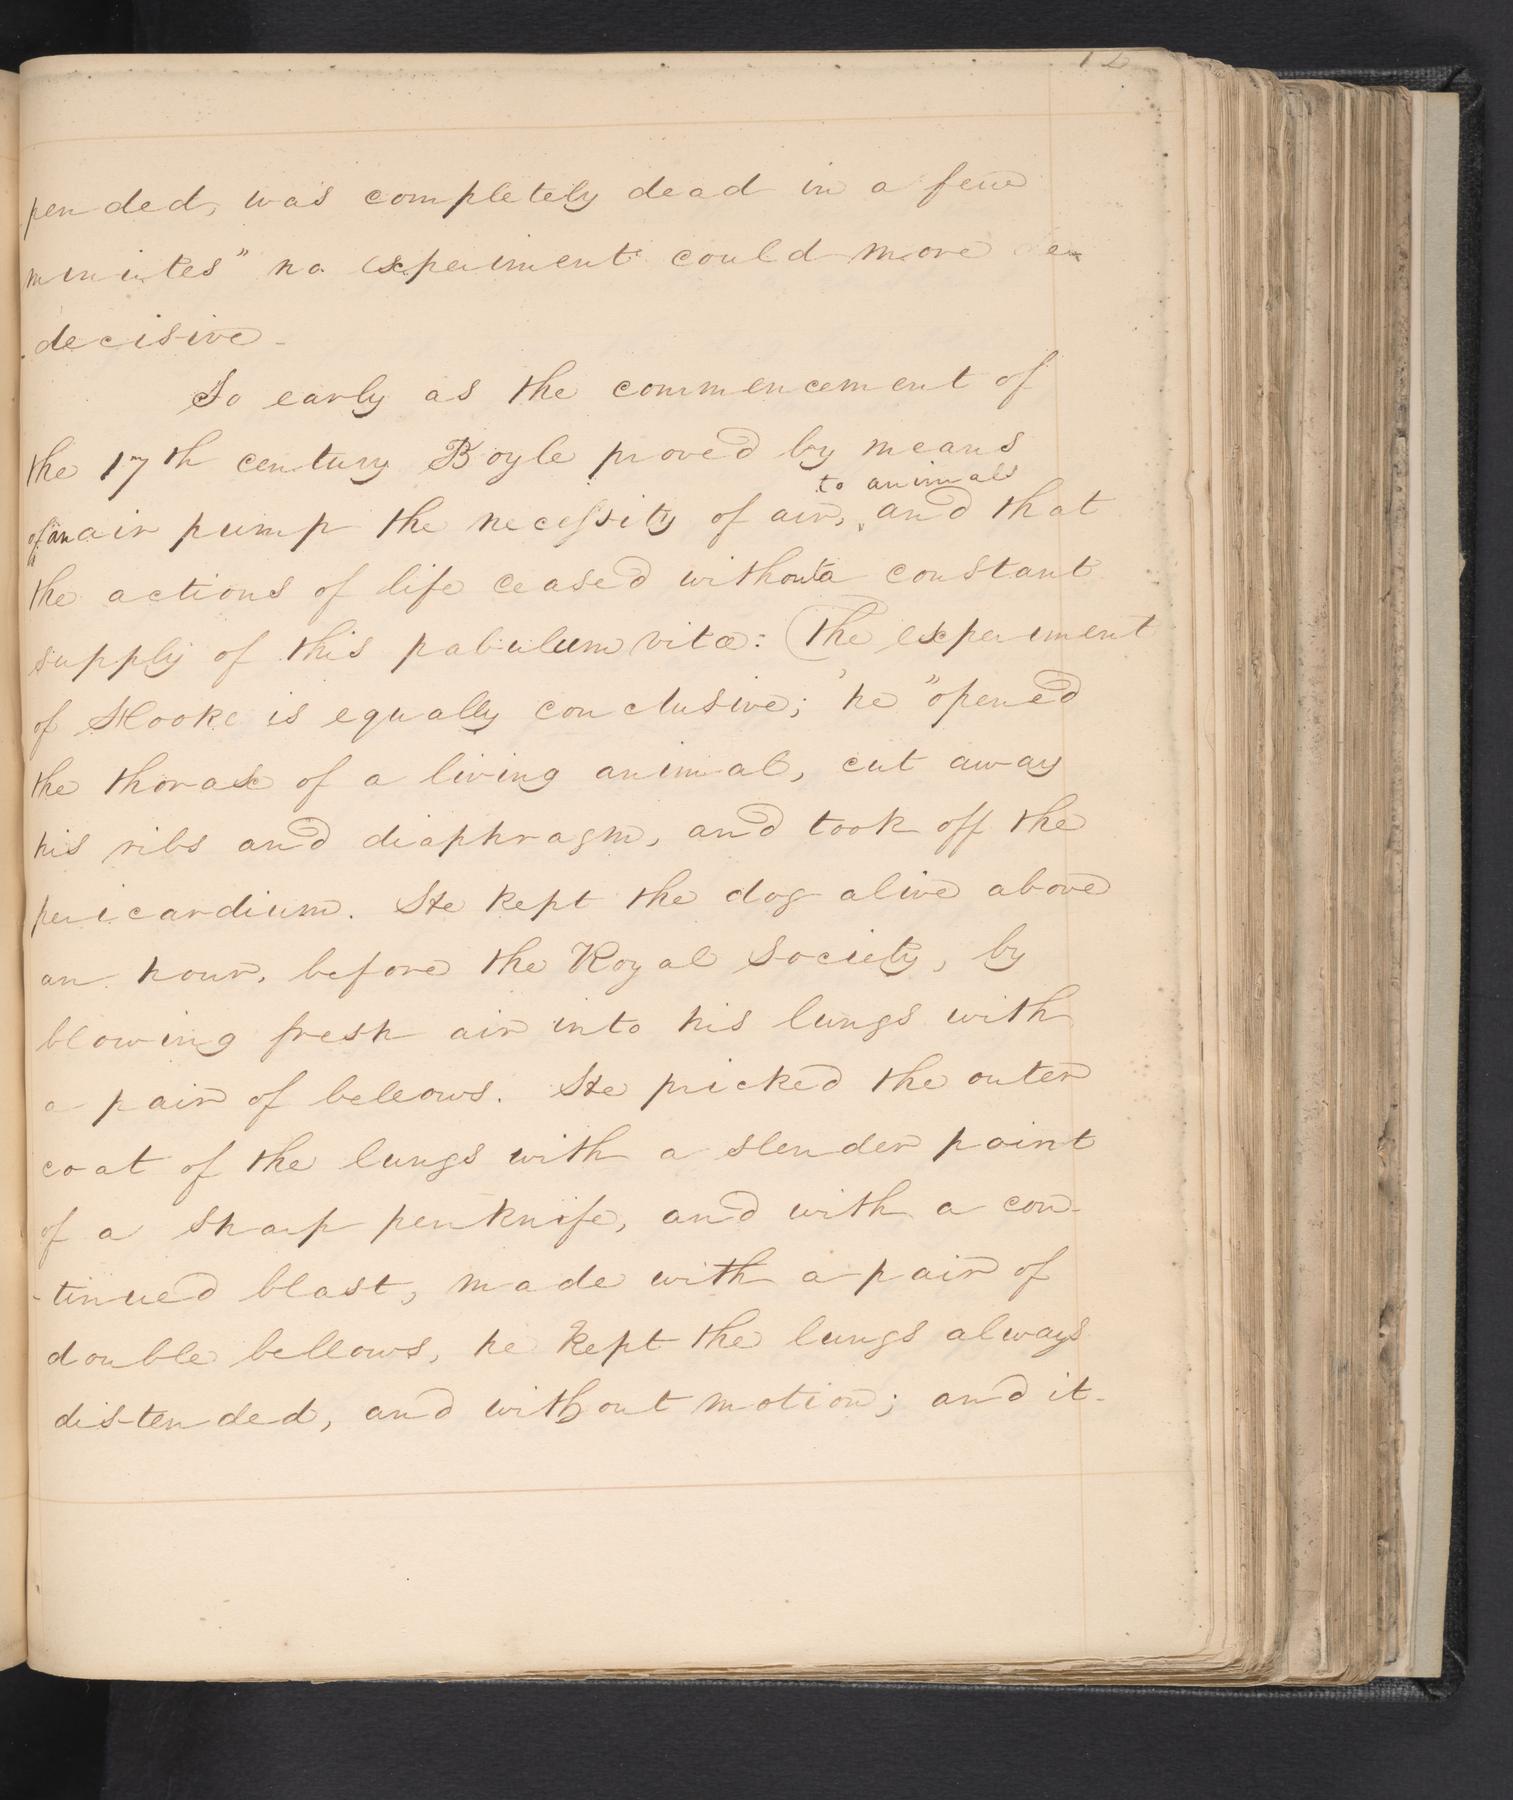 12
pended, was completely dead in a few
minutes" no experiment could more de-
decisive -
So early as the commencement of
the 17th century Boyle proved by means
to animals
of an air pump the necessity of air, and that
the actions of life ceased without a constant
supply of this pabulum vitæ: The experiment
of Hooke is equally conclusive; he "opened
the thorax of a living animal, cut away
his ribs and diaphragm, and took off the
pericardium. He kept the dog alive above
an hour, before the Royal Society, by
blowing fresh air into his lungs with
a pair of bellows. He pricked the outer
coat of the lungs with a slender point
of a sharp penknife, and with a con-
-tinued blast, made with a pair of
double bellows, he kept the lungs always
distended, and without motion; and it-